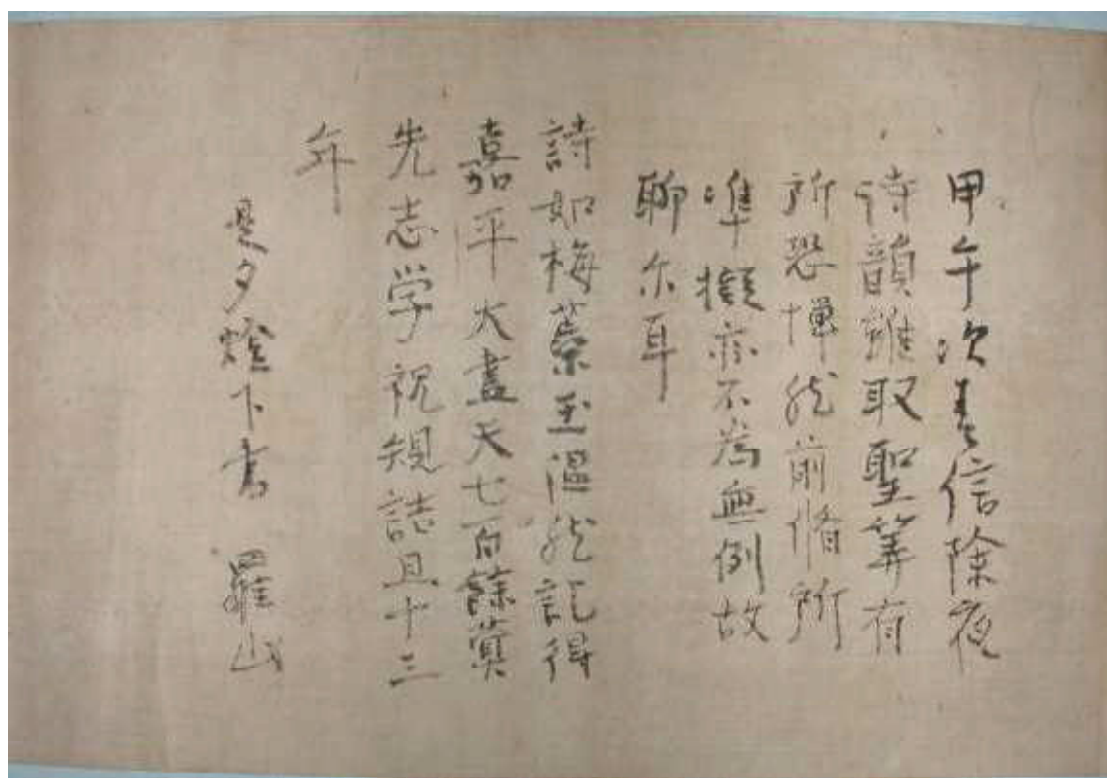 甲午次春信除夜
詩韻雖取聖筭有
所恐憚然前脩所
準擬亦不為無例故
聊尓耳
詩如梅蘂玉温然記得
嘉平大盡天七百餘蓂
先志学祝規誌且十三
年
是夕燈下書 羅山